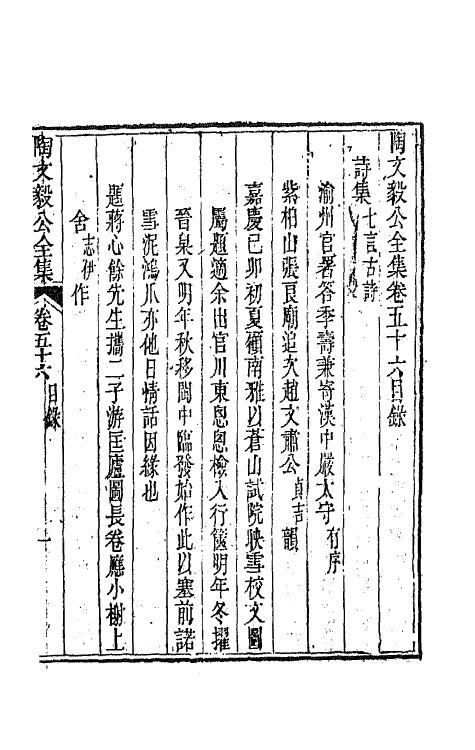 陶文毅公全集卷五十六目錄
詩集七言古詩
渝州官署答季壽兼寄漢中嚴太守有序
紫柏山張良廟追次趙文肅公貞吉韻
嘉慶己卯初夏顧南雅以蒼山試院映雪校文圖
屬題適余出官川東悤悤檢入行篋明年冬擢
晉臬又明年秋移閩中臨發始作此以塞前諾
雪泥鴻爪亦他日情話因緣也
題蔣心餘先生攜二子游匡廬圖長卷應小榭上
舍志伊作
陶文毅公全集 卷五十六目錄 一